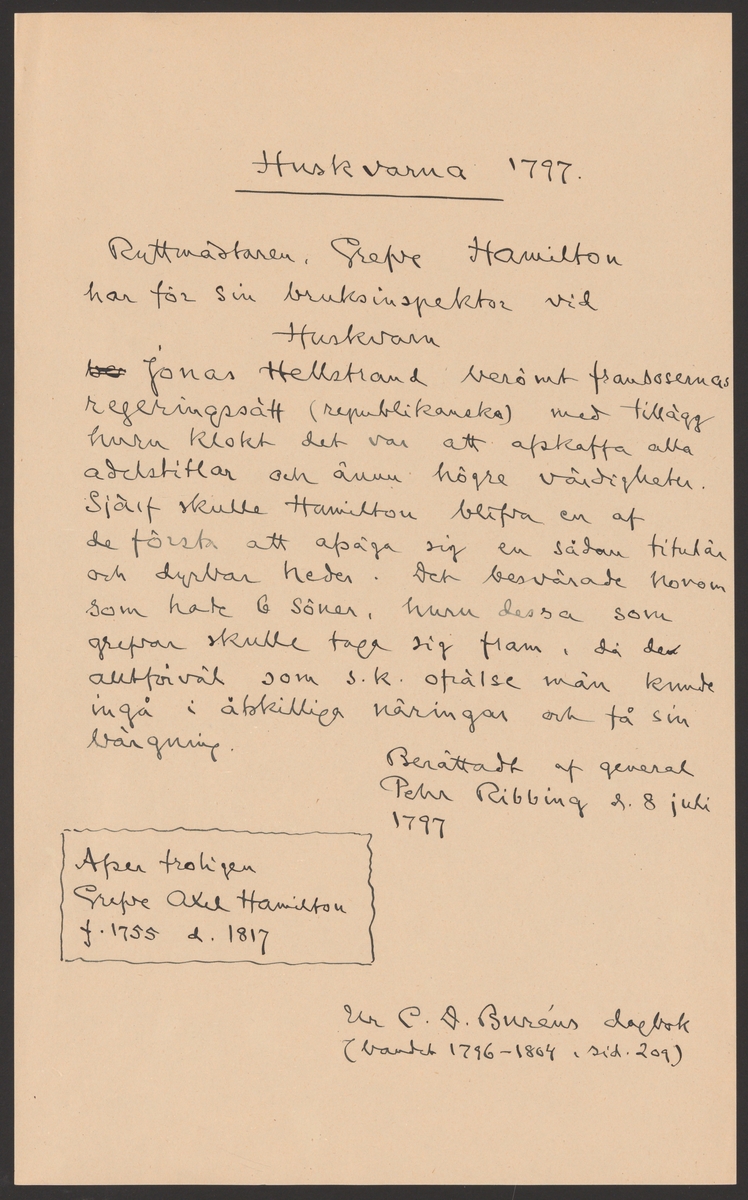 Huskvarna 1797.
Ryttmästaren, Grefve Hamilton
har för sin bruksinspektor vid
Huskvarn
Jonas Hellstrand berömt fransosernas
regeringssätt (republikanska) med tillägg
huru klokt det var att afskaffa alla
adelstitlar och ännu högre värdigheter.
Sjelf skulle Hamilton blifva en af
de första att afsäga sig en sådan titulär
och dyrbar heder. Det besvärade honom
som hade 6 söner, huru dessa som
grefvar skulle taga sig fram, då de
alltförväl som s.k. ofrälse män kunde
ingå i åtskilliga näringar och få sin
bärgning.
Berättadt af general
Pehr Ribbing d. 8 juli
1797
Afser troligen
Grefve Axel Hamilton
f. 1755 d. 1817
Ur C. D. Buréns dagbok
(bandet 1796-1804, sid. 209)